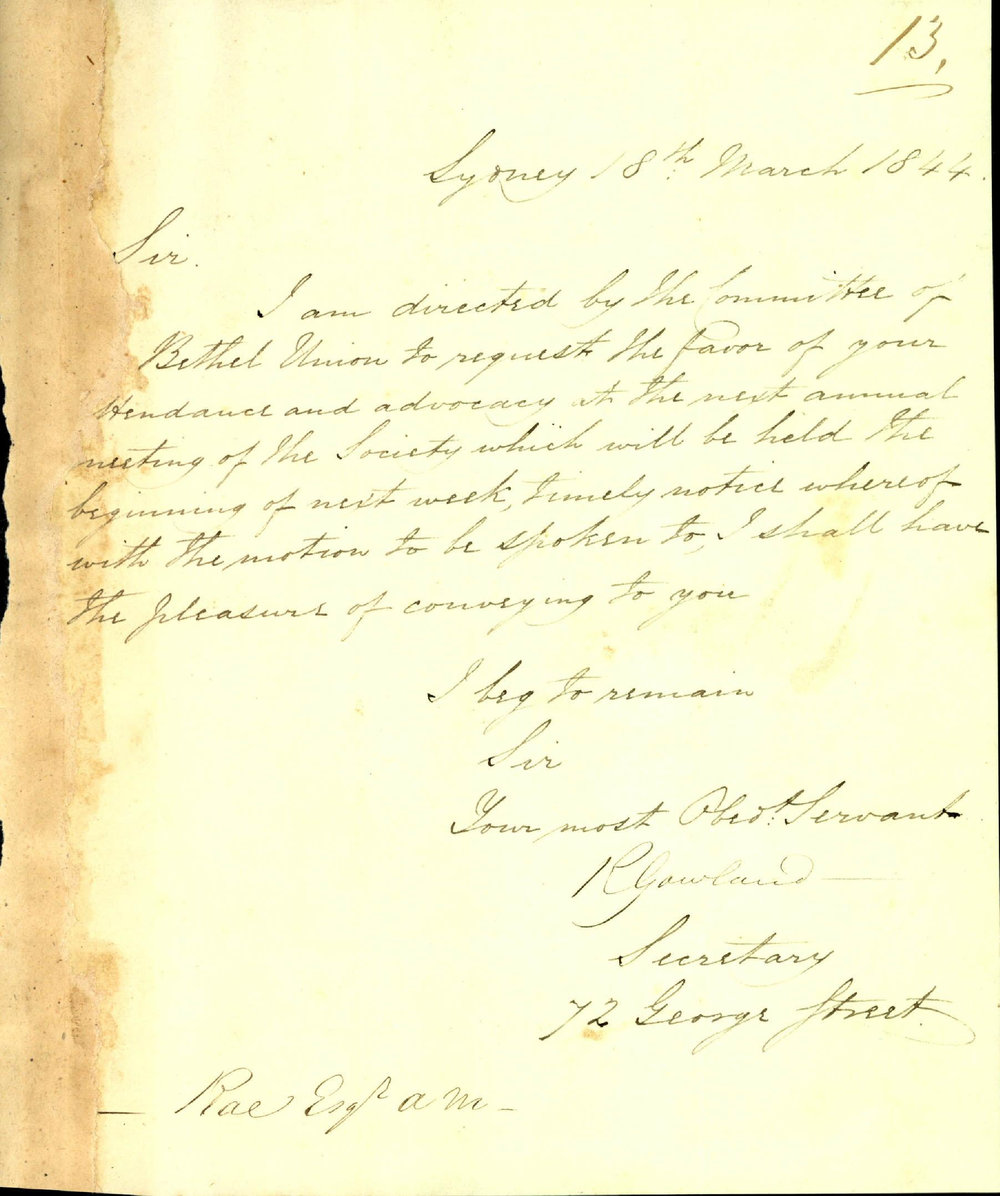 13,
Sydney 18th March 1844.
Sir.
I am directed by the Committee of
Bethel Union to request the favor of your
ttendance and advocacy at the next annual
meeting of the Society which will be held the
beginning of next week, timely notice whereof
with the motion to be spoken to, I shall have
the pleasure of conveying to you
I beg to remain
Sir
Your most Obedt. Servant
R Gowland
Secretary
72 George Street.
— Rae Esqr a m —